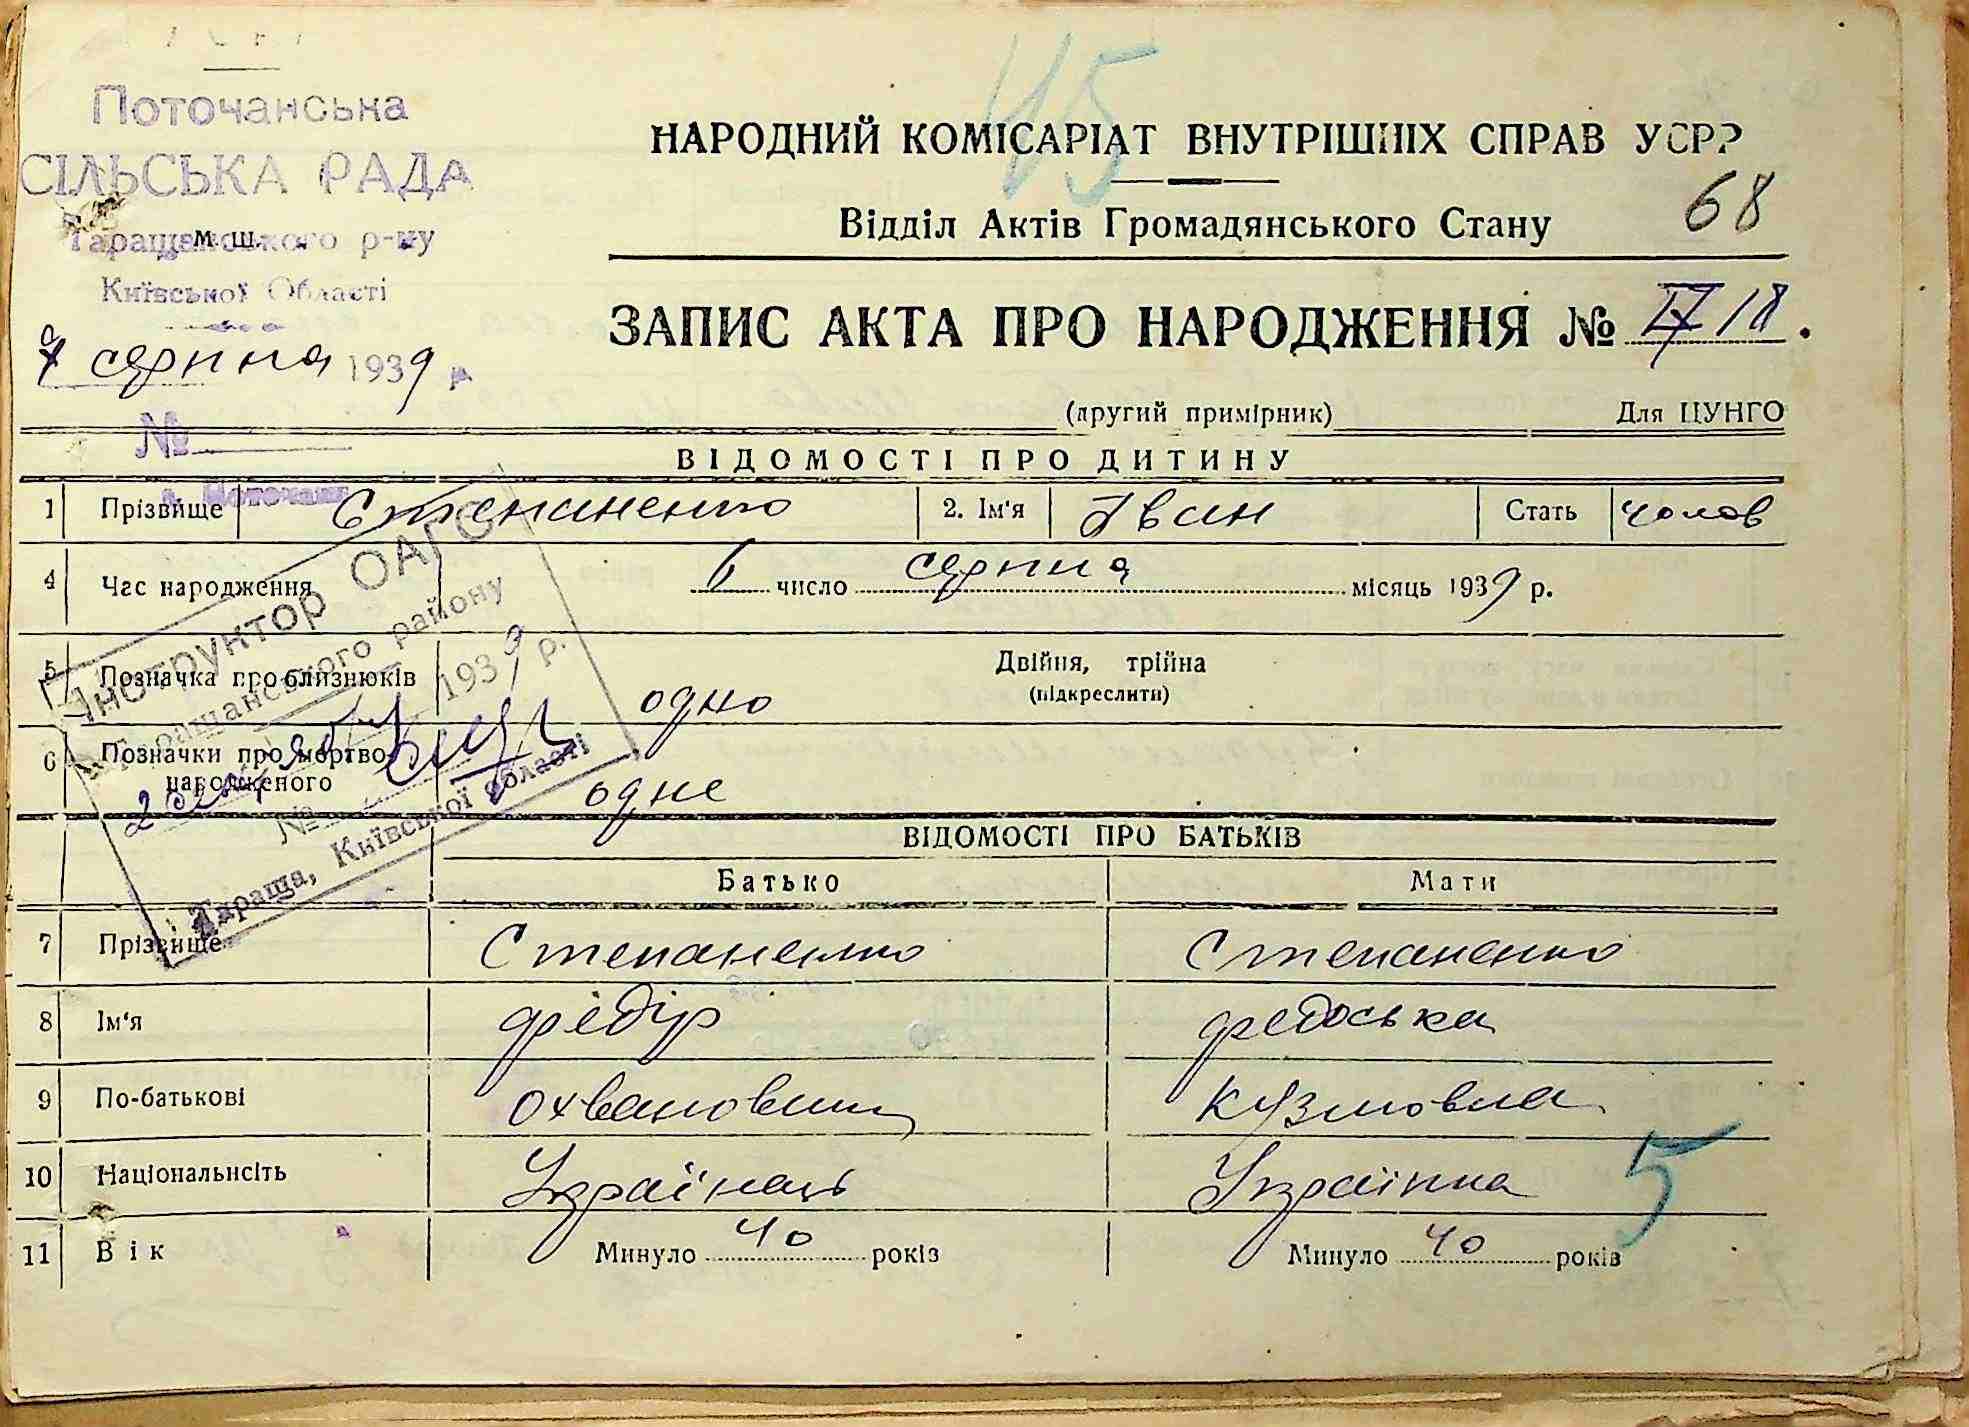 45
Поточанська
СІЛЬСЬКА РАДА
Таращанського р-ну
м. ш.
Київської Області
9 серпня 1939 р.
№
с. Поточани
НАРОДНИЙ КОМІСАРІАТ ВНУТРІШНІХ СПРАВ УСРР
Відділ Актів Громадянського Стану
68
ЗАПИС АКТА ПРО НАРОДЖЕННЯ № IV/18.
(другий примірник) Для ЦУНГО
ВІДОМОСТІ ПРО ДИТИНУ
1 Прізвище Степаненко 2. Ім'я Іван Стать чолов
4 Час народження 6 число серпня місяць 1939 р.
5 Позначка про близнюків одно Двійня, трійна
(підкреслити)
6 Позначки про мертво-
народженого одне
Інструктор ОАГС
Таращанського району
1939 р.
№
м. Тараща, Київської області
ВІДОМОСТІ ПРО БАТЬКІВ
Батько Мати
7 Прізвище Степаненко Степаненко
8 Ім'я Федір Федоська
9 По-батькові Охванович Кузмовна
10 Національнсіть Українець Українка
5
11 Вік Минуло 40 років Минуло 40 років